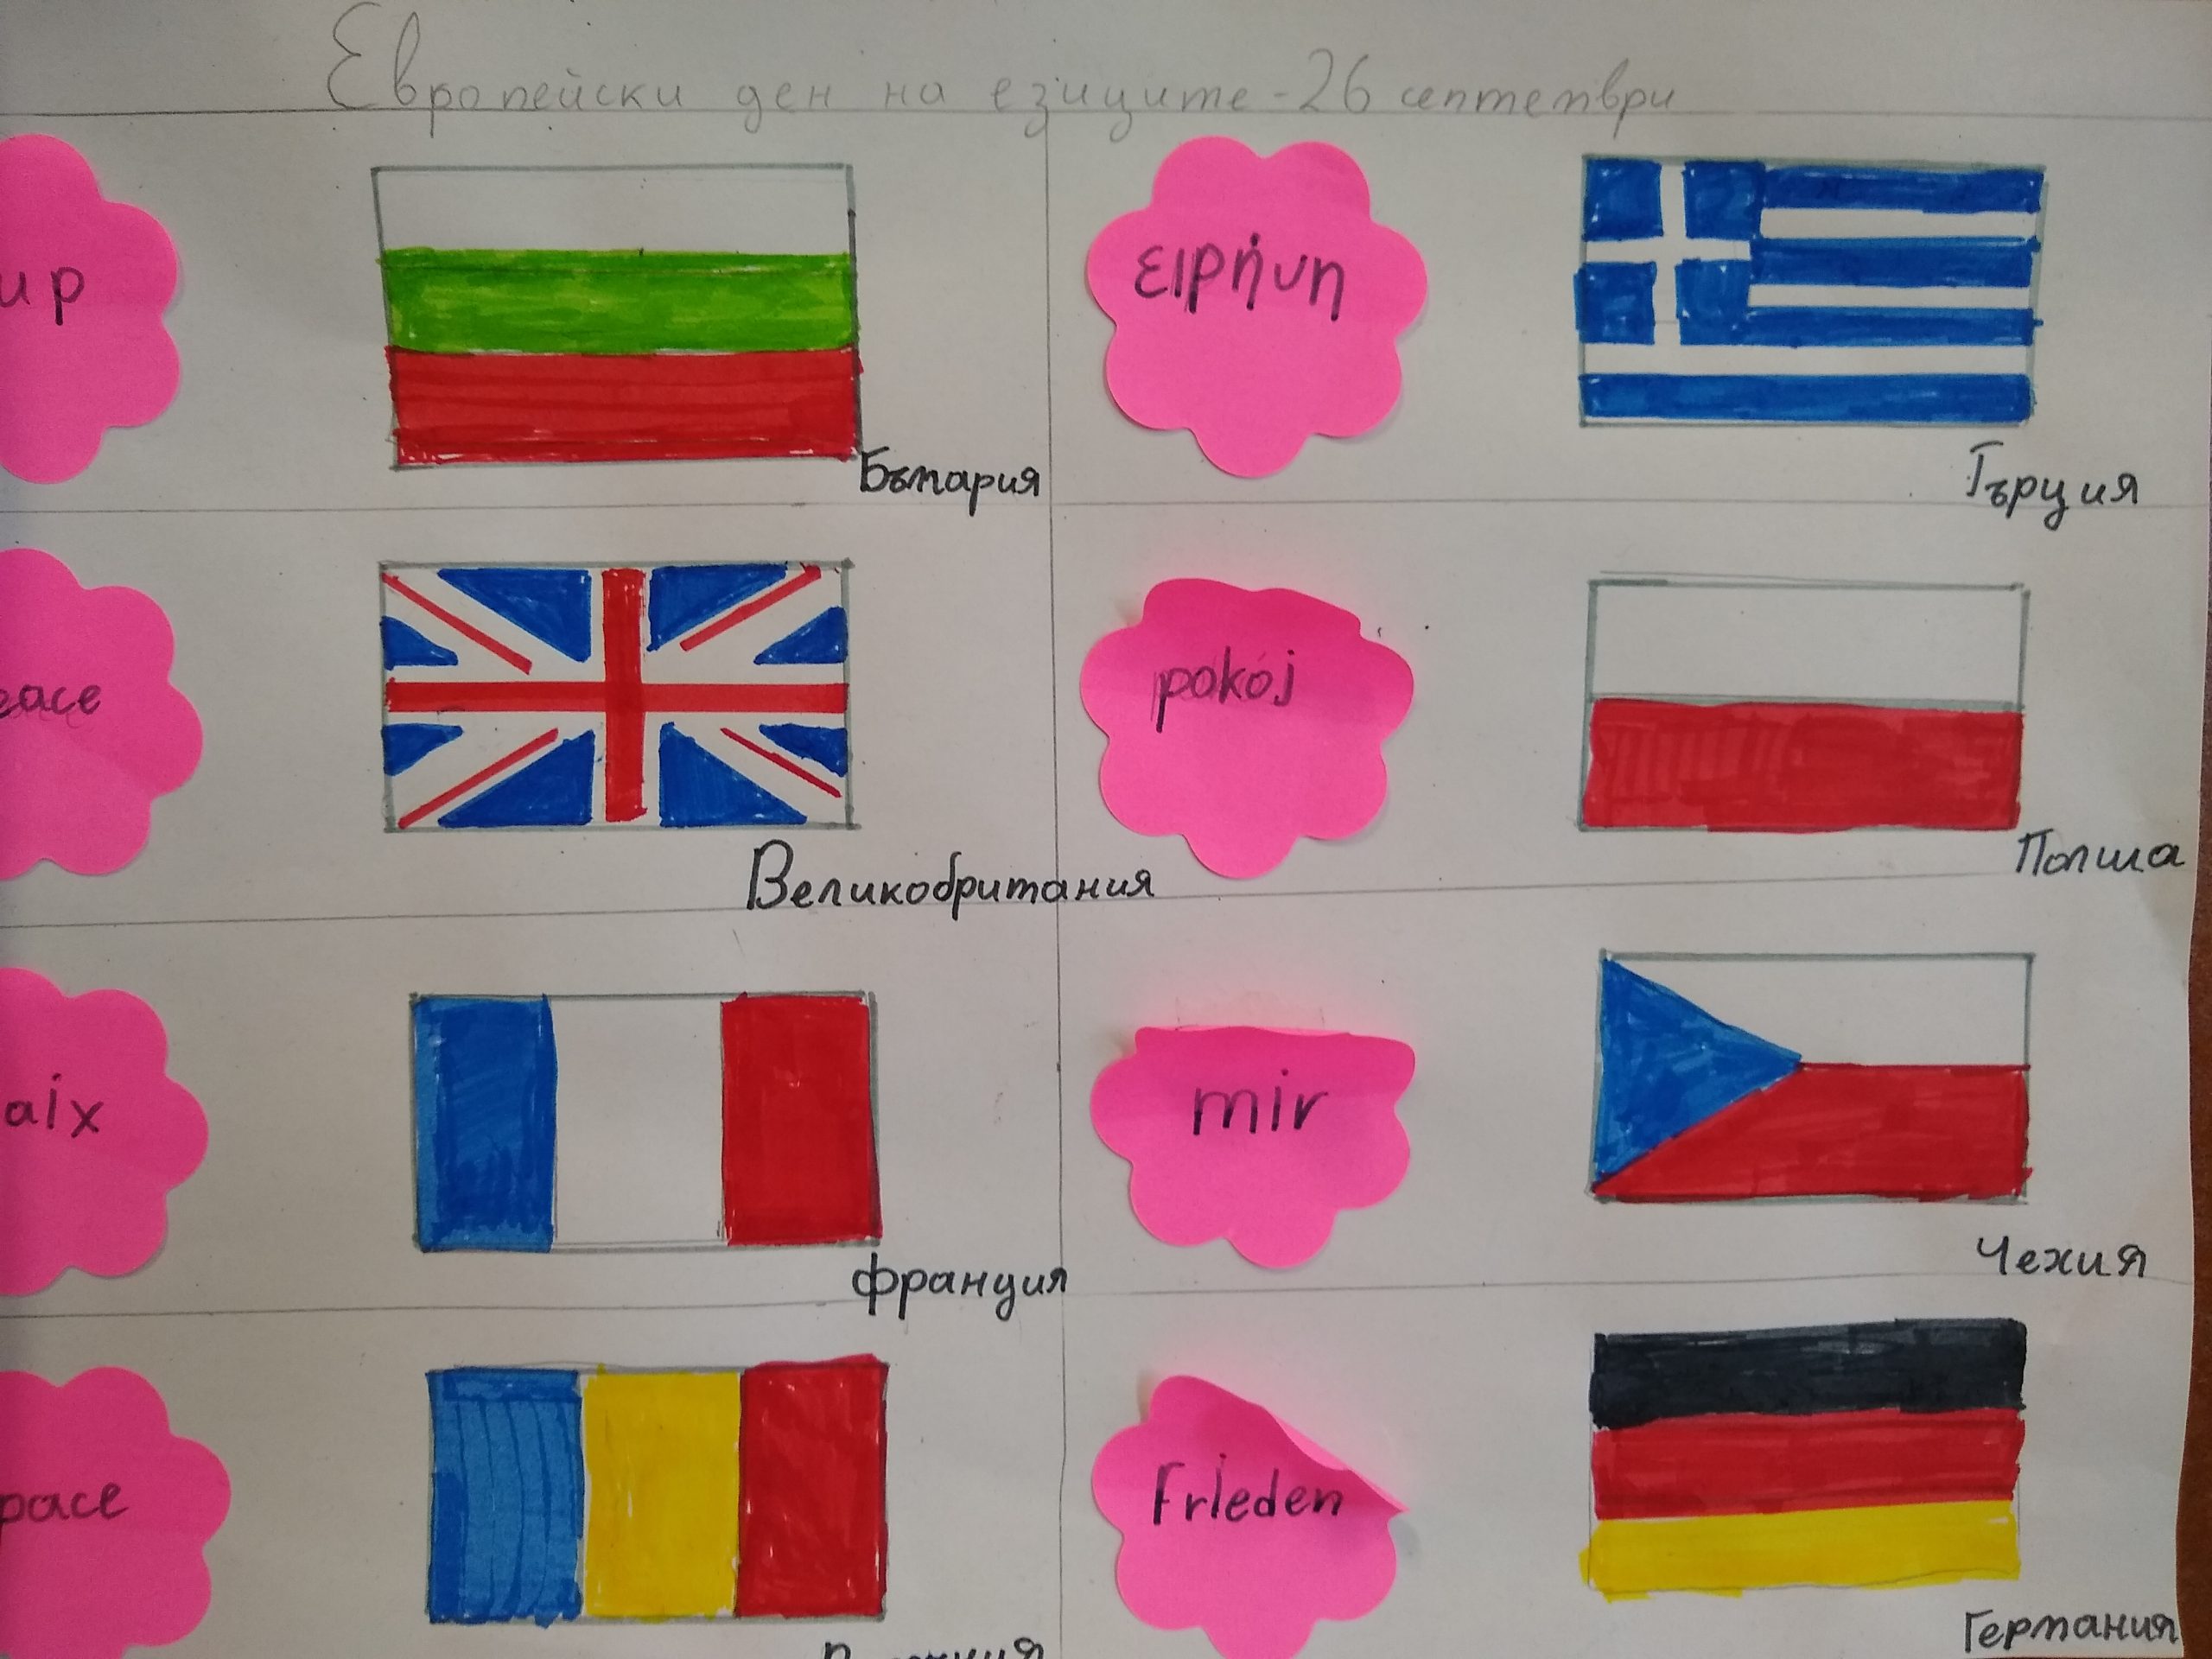 Европейски ден на езиците - 26 септември
ир
България
ειρήνη
Гърция
eace
Великобритания
pokój
Полша
aix
Франция
mir
Чехия
pace
Frieden
Германия